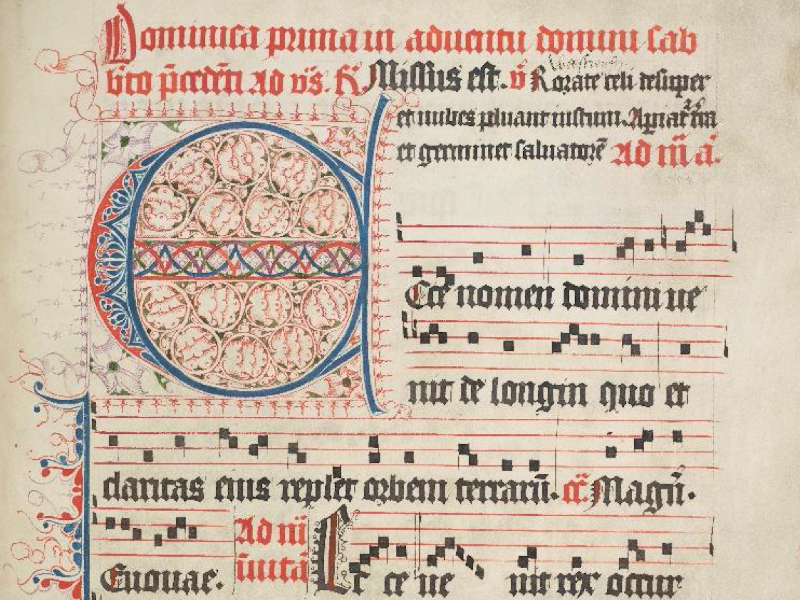 Dominica prima in aduentu domini sab
bto p̄cedēti ad vs̄. R Missus est. v̄ Rorate celi desuper
et nubes pluant iustum. Apiat̄ t̄ra
et germinet saluatorē Ad m̄ a.
Ecce nomen domini ue
nit de longin quo et
claritas eius replet orbem terrarū. Magn̄.
Euouae. Ad
uitā Ec ce ue nit rex occur